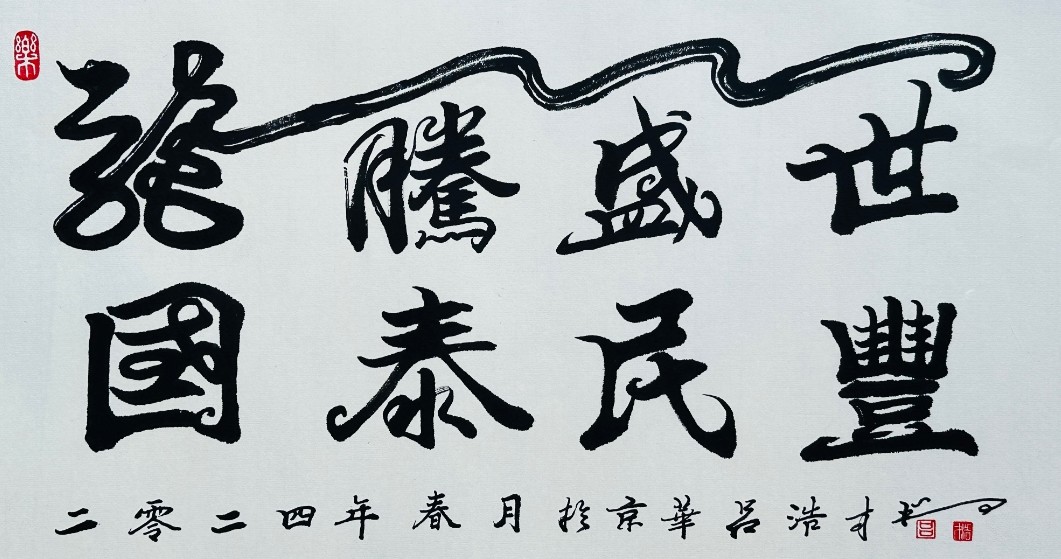 樂
龍騰盛世
國泰民豐
二零二四年春月於京華呂浩才书
吕